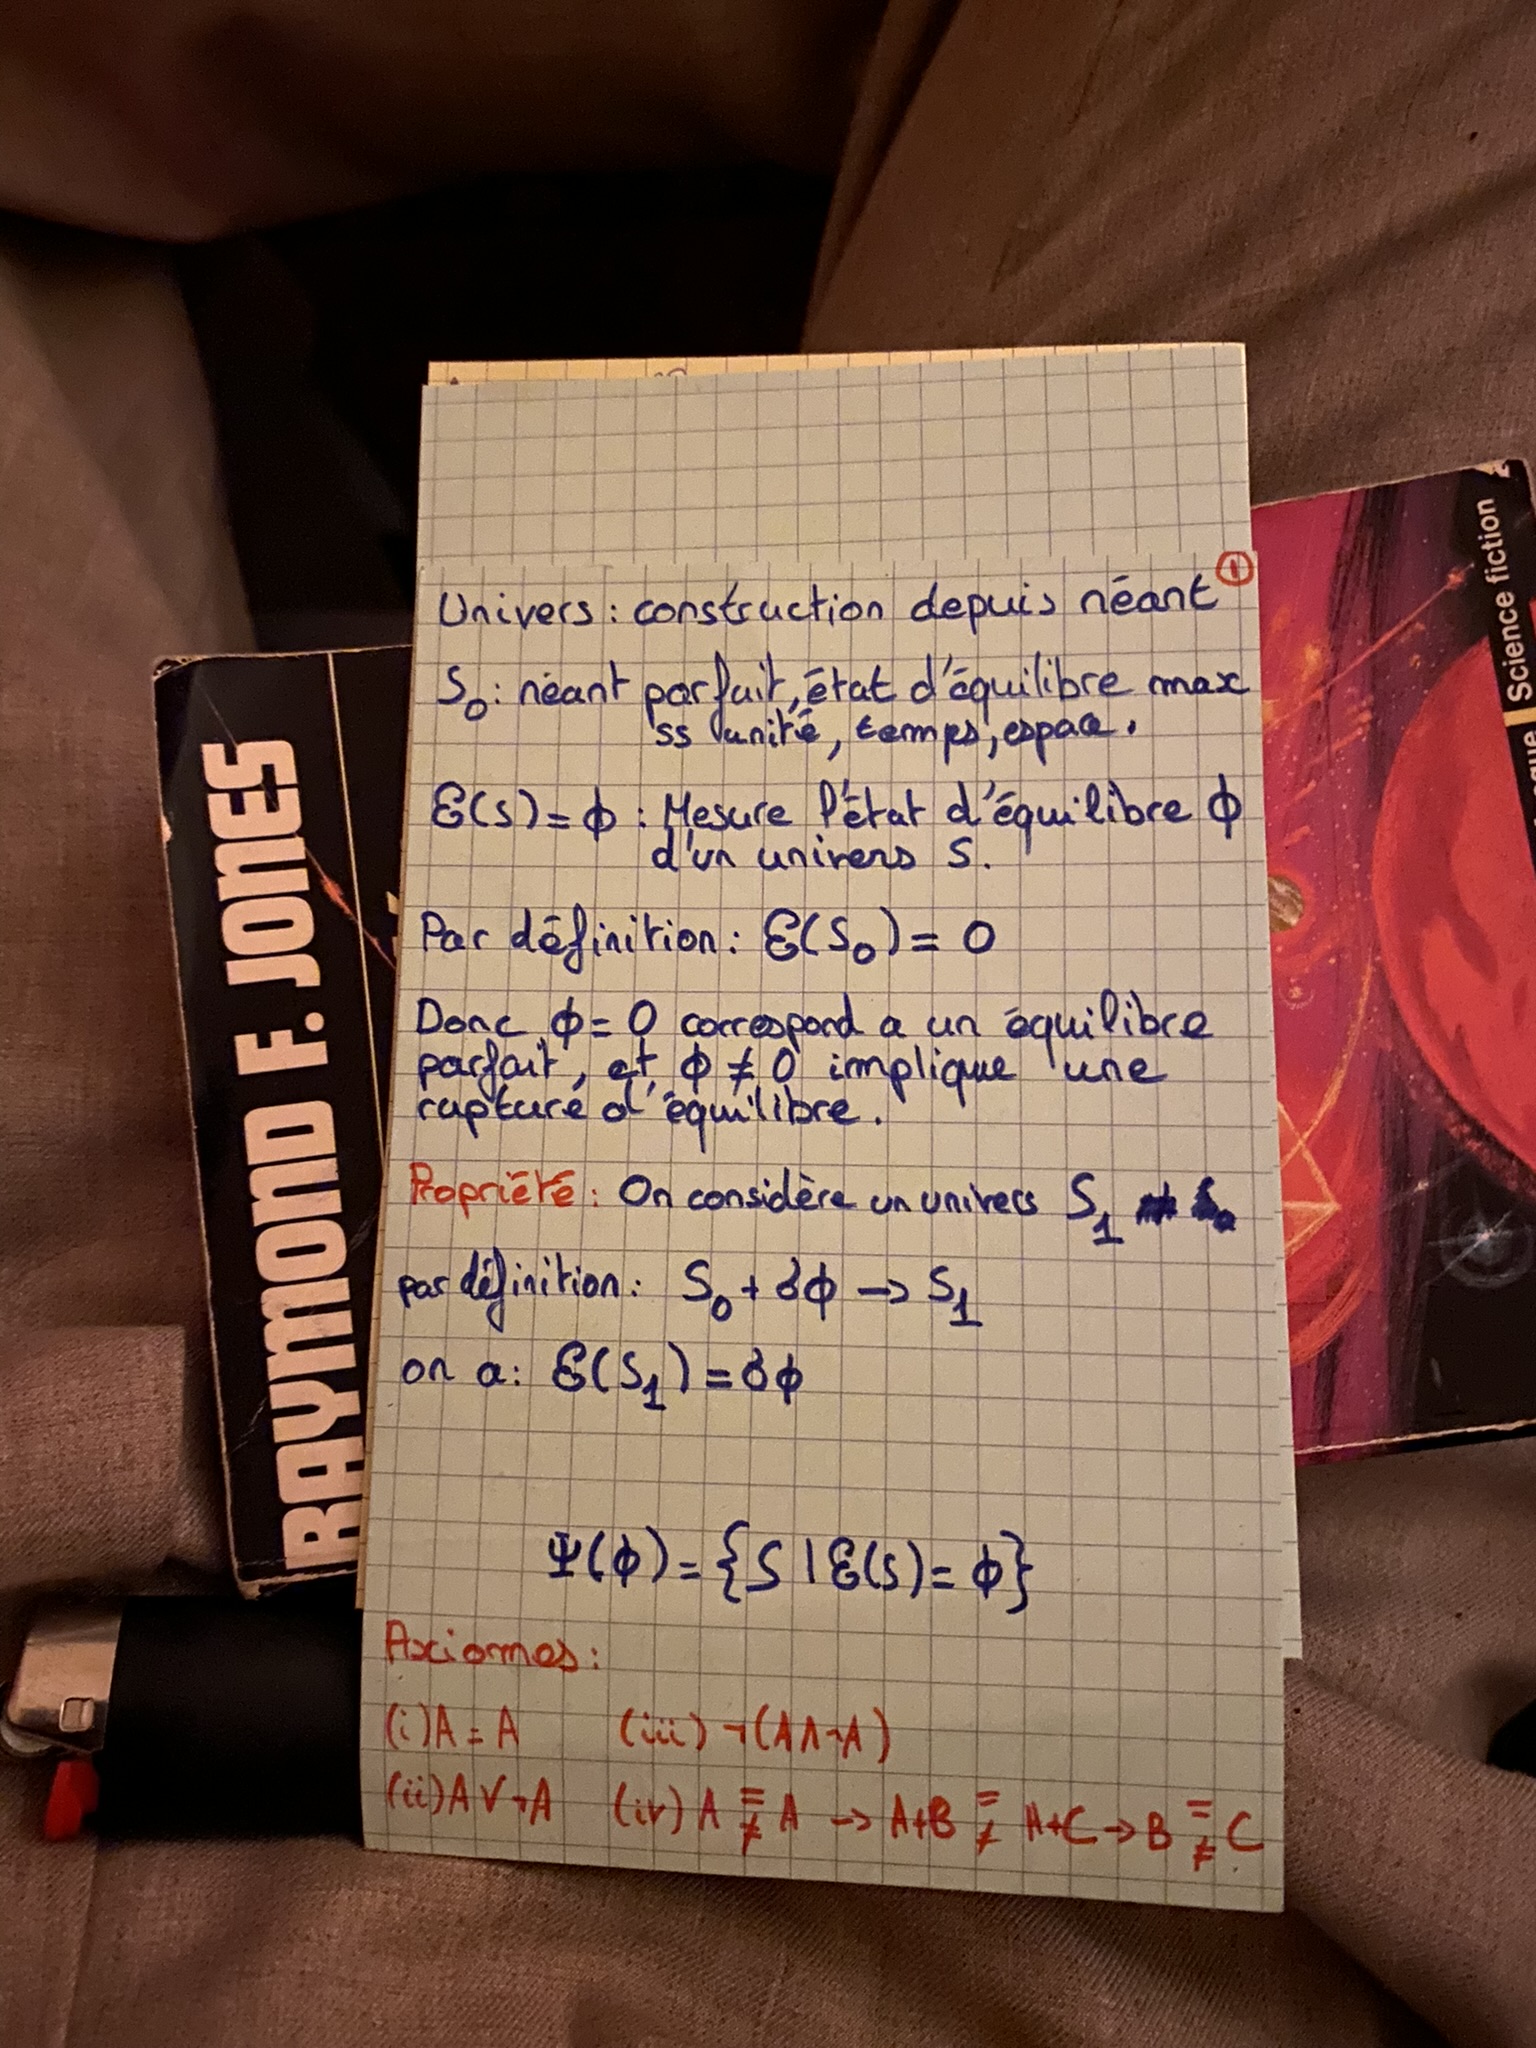 ①
Univers : construction depuis néant
S₀ : néant parfait, état d'équilibre max
ss unité, temps, espace.
Ɛ(S) = ϕ : Mesure l'état d'équilibre ϕ
d'un univers S.
Par définition : Ɛ(S₀) = 0
Donc ϕ = 0 correspond a un équilibre
parfait, et ϕ ≠ 0 implique une
rupture d'équilibre.
Propriété : On considère un univers S₁
par définition : S₀ + δϕ → S₁
on a : Ɛ(S₁) = δϕ
Ψ(ϕ) = {S | Ɛ(S) = ϕ}
Axiomes :
(i) A = A (iii) ¬(A ∧ ¬A)
(ii) A ∨ ¬A (iv) A =/≠ A → A+B =/≠ A+C → B =/≠ C
RAYMOND F. JONES
Science fiction